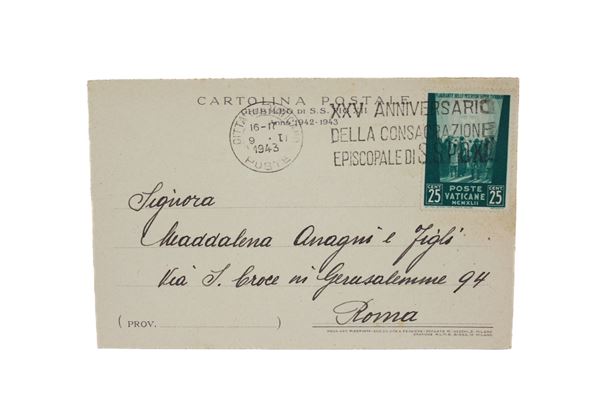 CARTOLINA POSTALE
GIUBILEO DI S.S. PIO XII
1942-1943
CITTA
16-17
9
1943
POSTE
XXV ANNIVERSARIO
DELLA CONSACRAZIONE
EPISCOPALE DI S.S. PIO XII
CENT 25
POSTE
VATICANE
MCMXLII
CENT 25
Signora
Maddalena Anagni e Figli
Via S. Croce in Gerusalemme 94
Roma
( PROV. )